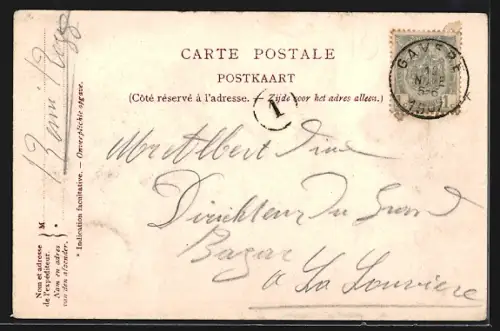 CARTE POSTALE
POSTKAART
(Côté réservé à l'adresse. — Zijde voor het adres alleen.)
GAVERE
1
Mr Albert
Direkteur du Grand
Bazar
à La Louvière
Nom et adresse de l'expéditeur.
Naam en adres van den afzender.
M
* Indication facultative. — Onverplichte opgave.